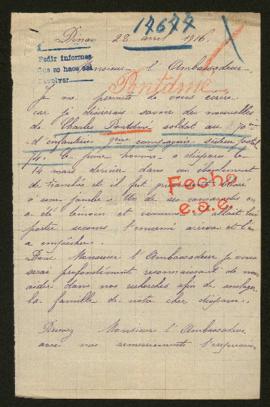 Dinan 28 avril 1916
17677
Pedir informes
que no hace sel
devolver
Monsieur l'Ambassadeur
Pontdme
Je me permets de vous écrire
car je désirerais savoir des nouvelles
de Charles Pontdme soldat au 70ème
d'infanterie compagnie secteur postal
74. Ce jeune homme a disparu le
14 mars dernier dans un
de tranchée et il fut
Fecha
e.a.c.
a sa famille. Un de ses camarades
a été témoin et
porter secours l'ennemi arriva et l'en
a empêcher.
Donc Monsieur l'Ambassadeur je vous
serai profondément reconnaissant de nous
aider dans nos recherches afin de soulager
la famille de notre cher disparu.
Monsieur l'Ambassadeur
avec nos remerciements l'expression